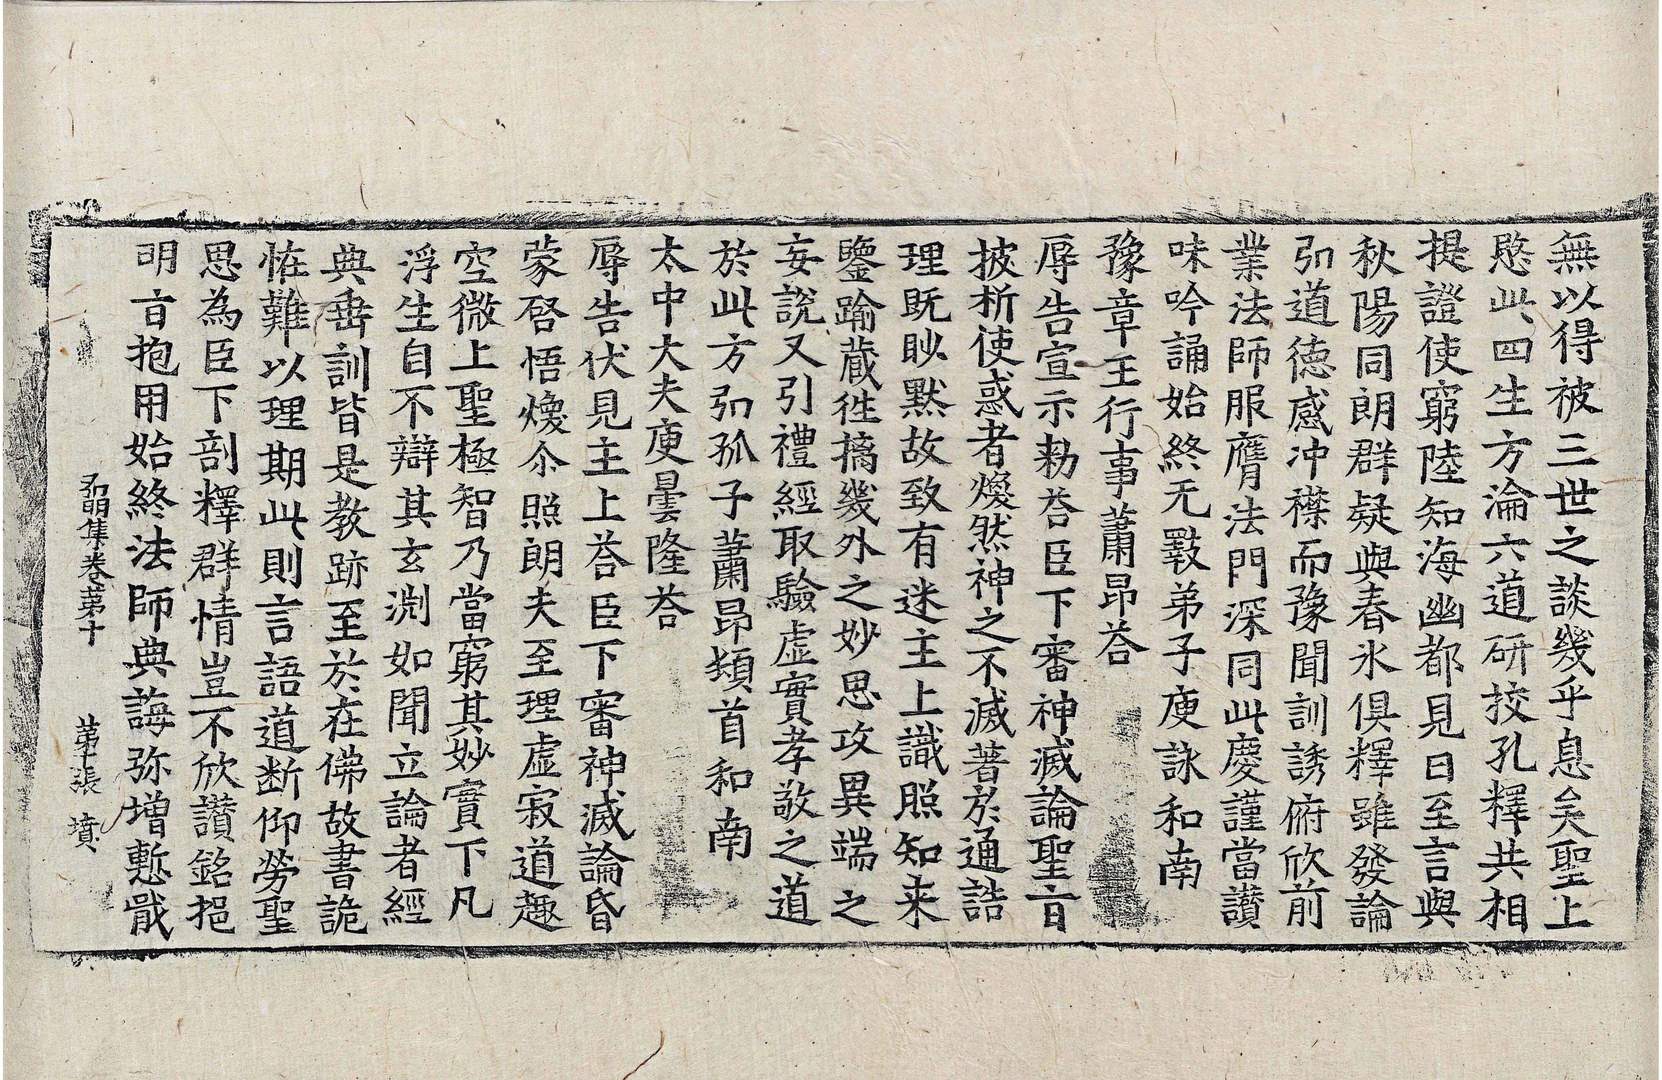 無以得被三世之談幾乎息矣聖上
愍此四生方淪六道研挍孔釋共相
提證使窮陸知海幽都見日至言與
秋陽同朗群疑與春氷俱釋雖發論
弘道德感沖襟而豫聞訓誘俯欣前
業法師服膺法門深同此慶謹當讃
味吟誦始終无斁弟子庾詠和南
豫章王行事蕭昂荅
辱告宣示勑荅臣下審神滅論聖㫖
披析使惑者煥然神之不滅著於通誥
理既眇默故致有迷主上識照知来
鑒踰藏徃摛幾外之妙思攻異端之
妄說又引禮經取驗虛實孝敬之道
於此方弘孤子蕭昂頓首和南
太中大夫庾曇隆荅
辱告伏見主上荅臣下審神滅論昏
蒙啓悟煥尒照朗夫至理虛寂道趣
空微上聖極智乃當窮其妙實下凡
浮生自不辯其玄淵如聞立論者經
典垂訓皆是教跡至於在佛故書詭
恠難以理期此則言語道断仰勞聖
思為臣下剖釋群情豈不欣讃銘挹
明㫖抱用始終法師典誨弥增慙戢
弘明集卷第十 第十張 墳